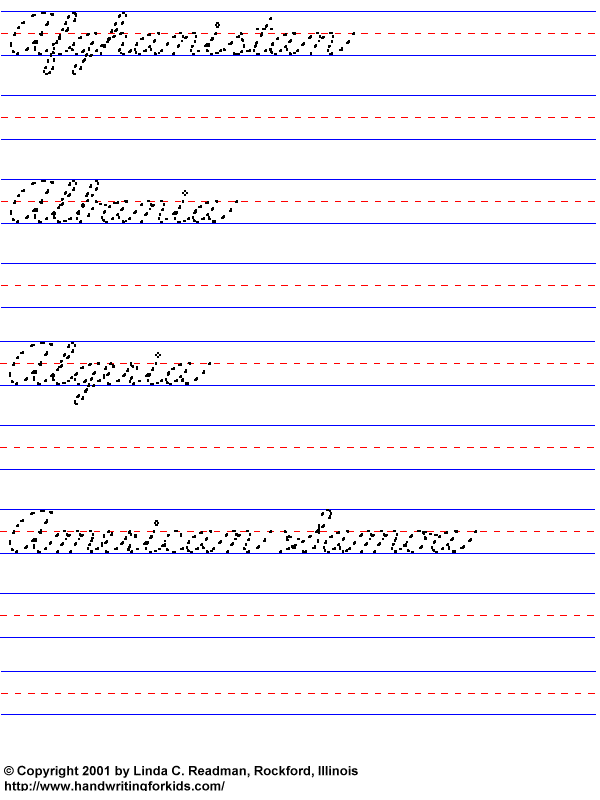 Afghanistan
Albania
Algeria
American Samoa
© Copyright 2001 by Linda C. Readman, Rockford, Illinois
http://www.handwritingforkids.com/